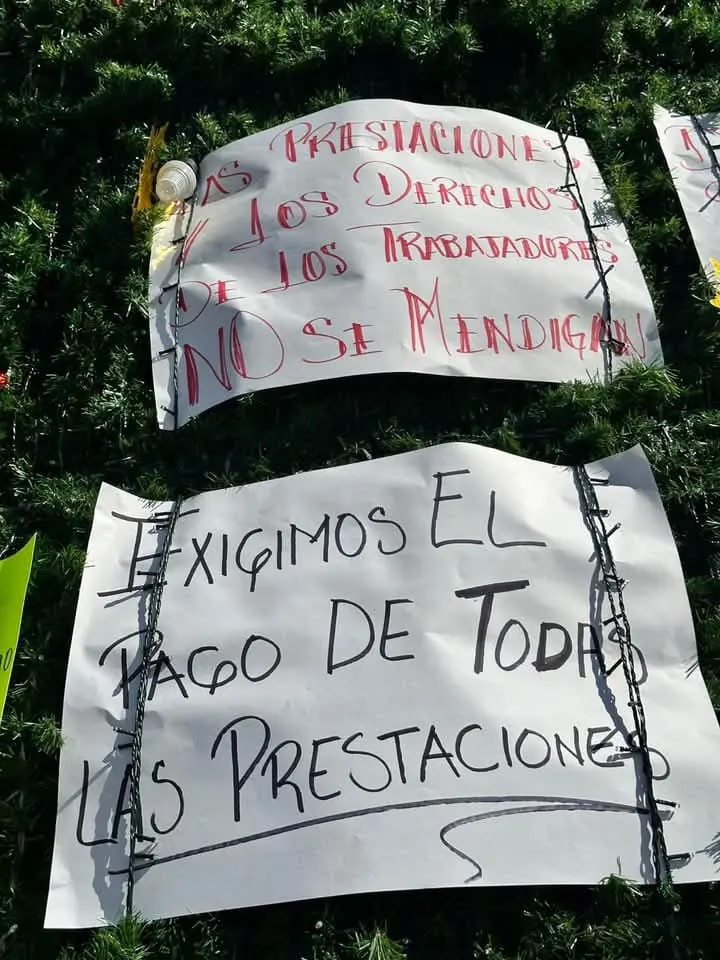 LAS PRESTACIONES
Y LOS DERECHOS
DE LOS TRABAJADORES
NO SE MENDIGAN
EXIGIMOS EL
PAGO DE TODAS
LAS PRESTACIONES